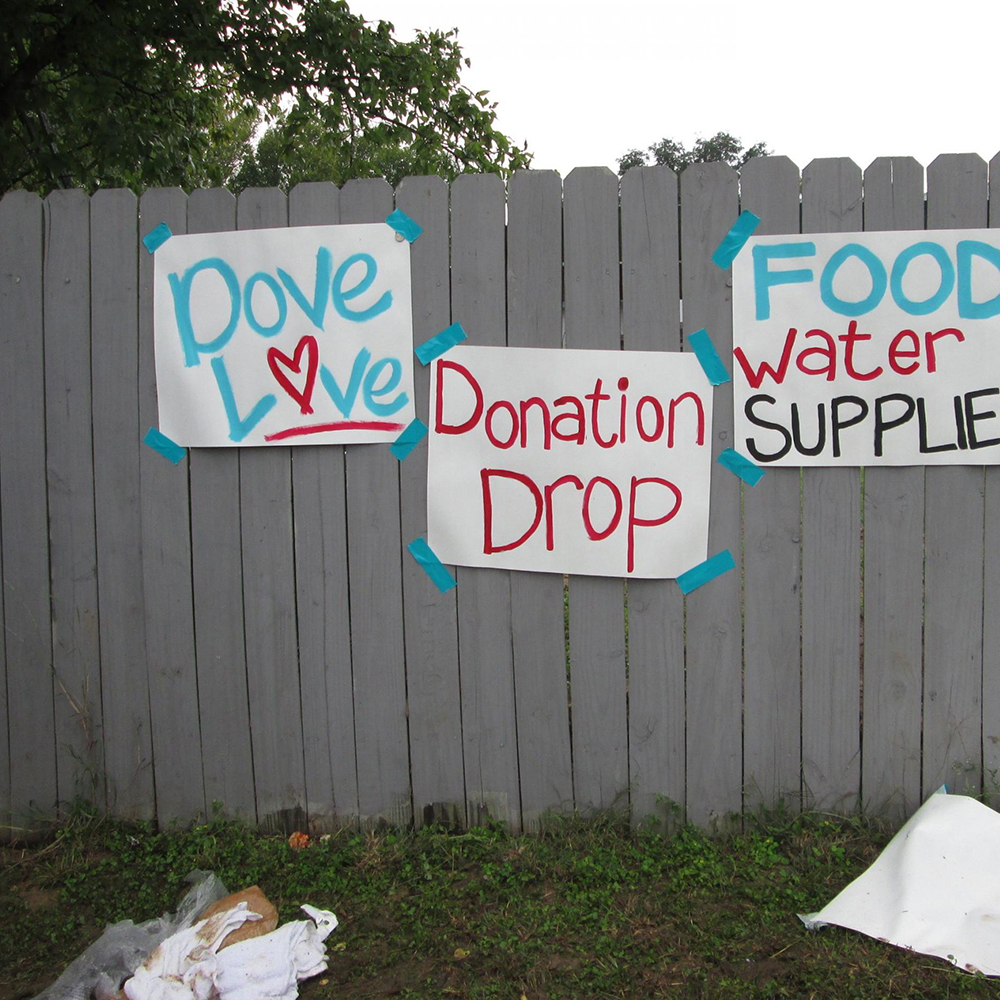 Dove
Love
Donation
Drop
FOOD
Water
SUPPLIE